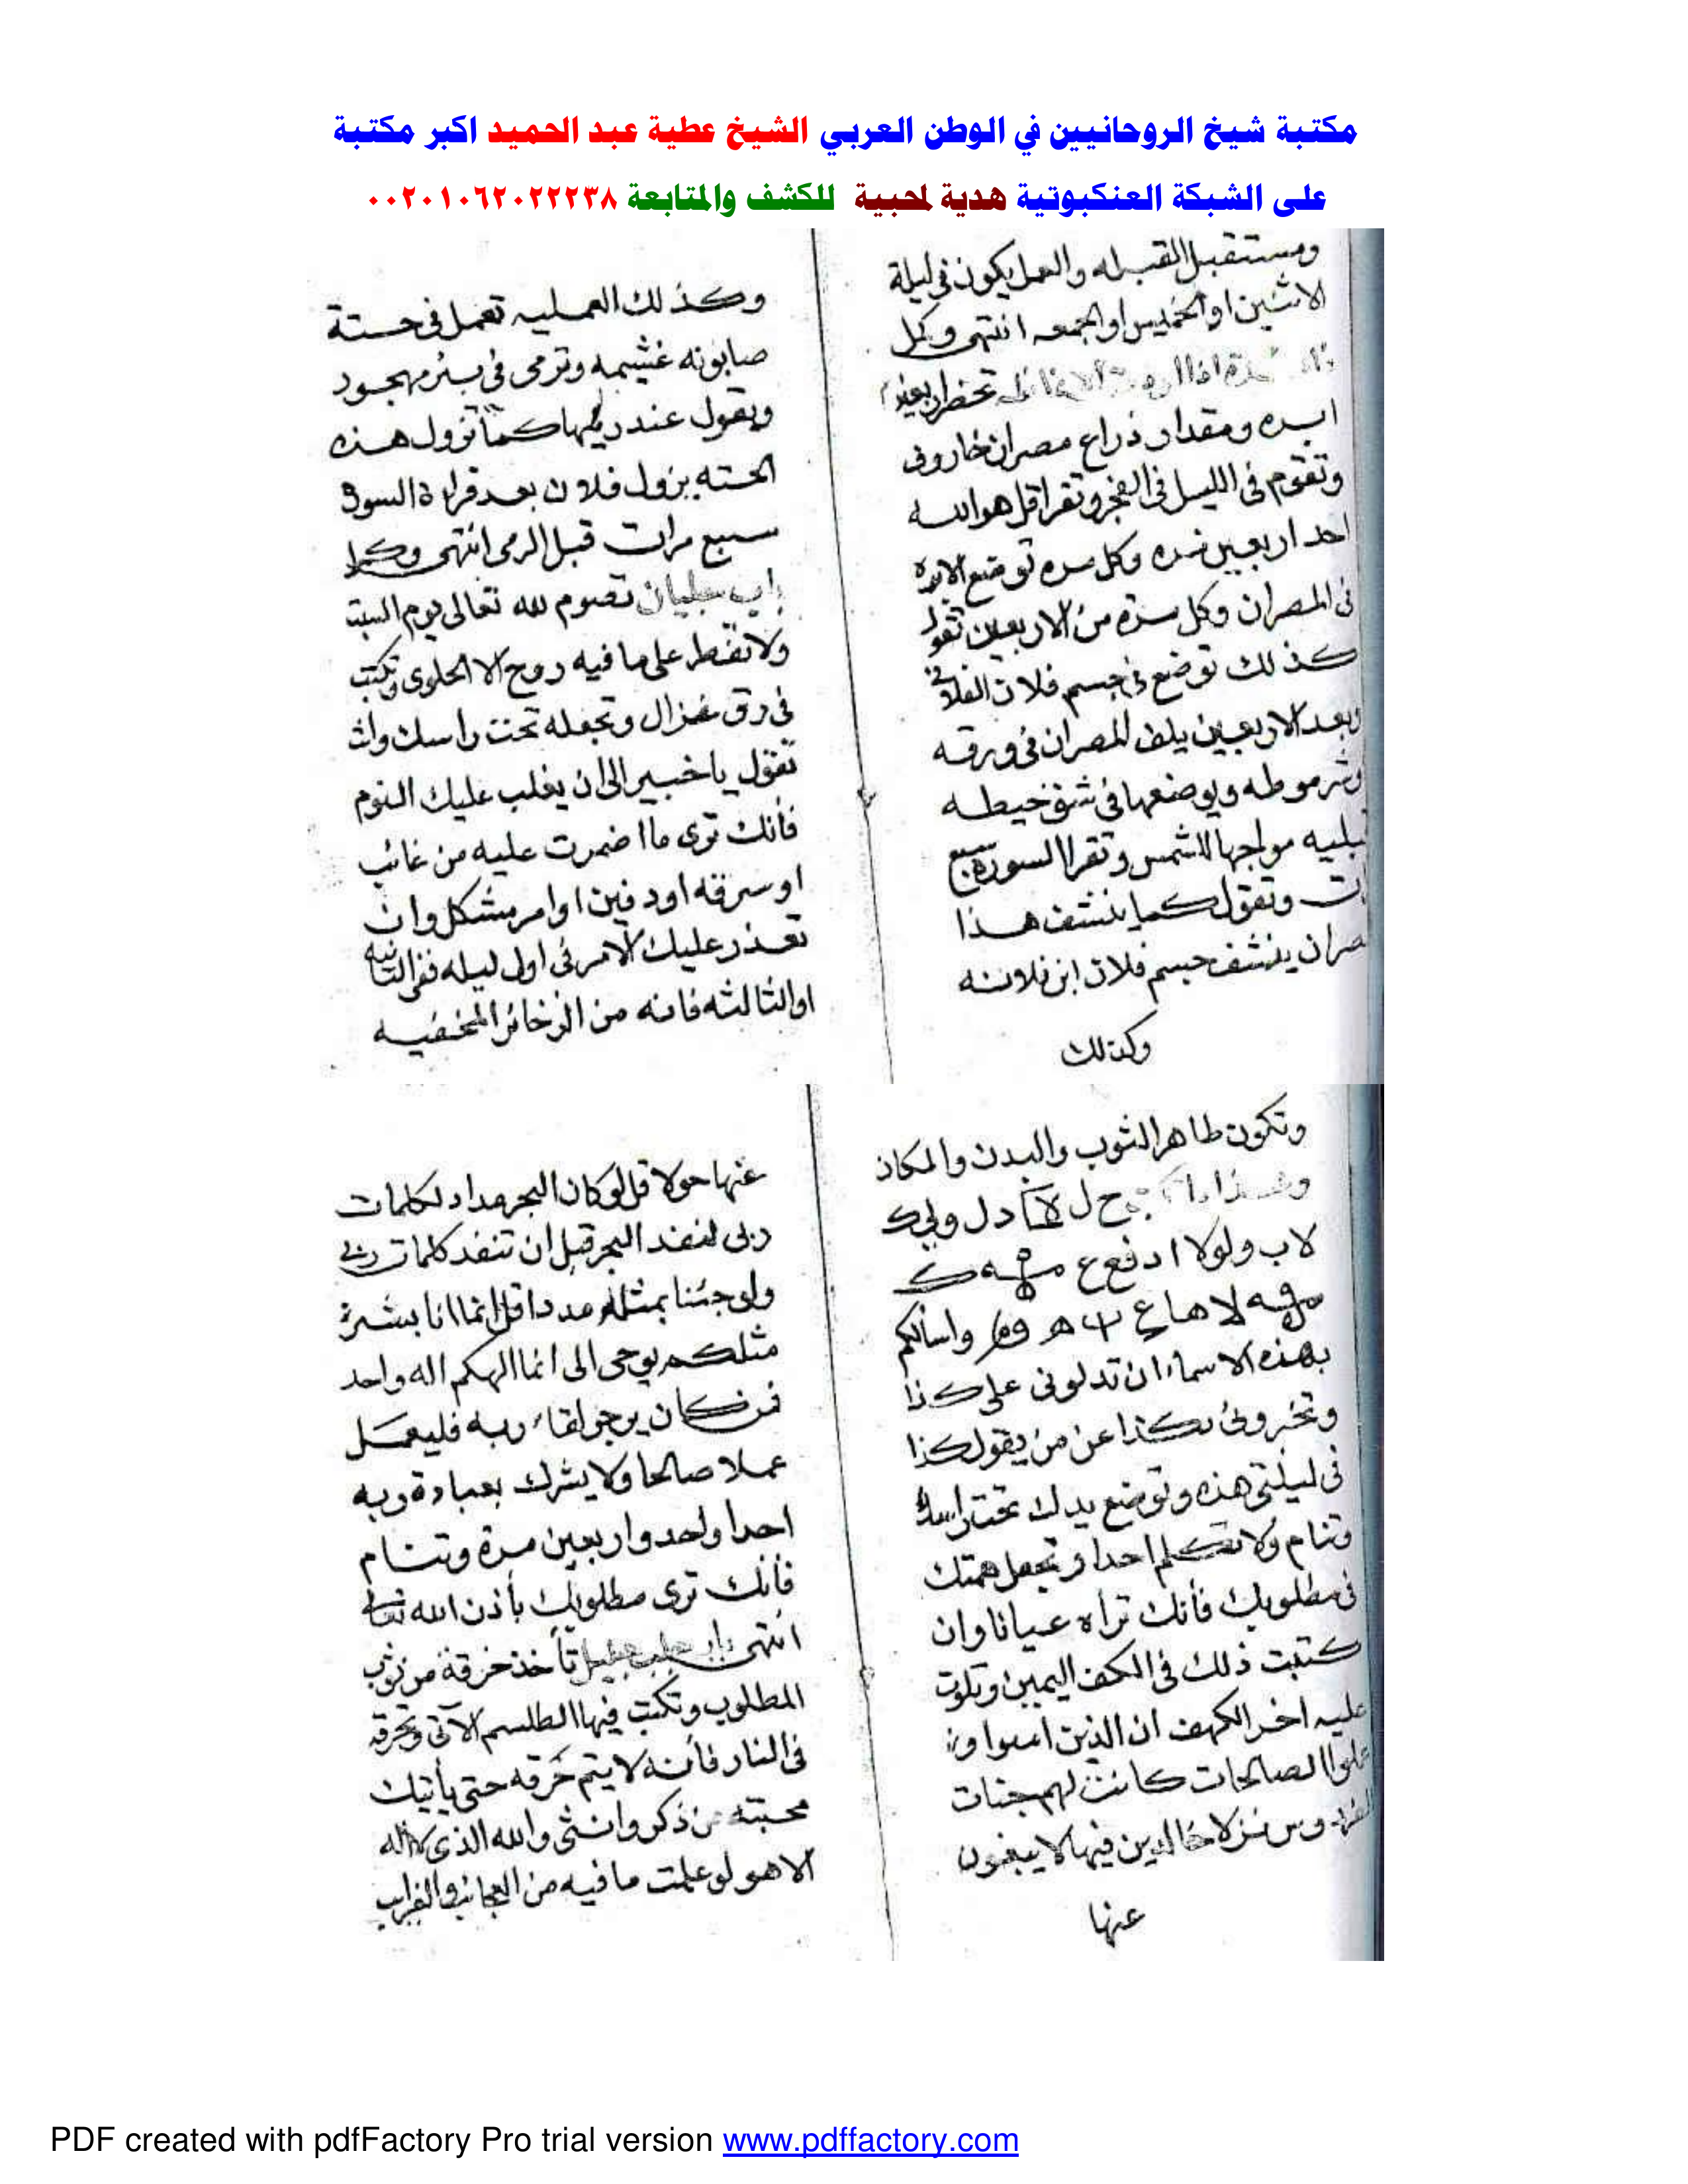 مكتبة شيخ الروحانيين في الوطن العربي الشيخ عطية عبد الحميد اكبر مكتبة
على الشبكة العنكبوتية هدية لمحبية للكشف والمتابعة ٠٠٢٠١٠٦٢٠٢٢٢٣٨
ومستقبل القبله والعمل يكون في ليلة
الاثنين او الخميس او الجمعه انتهى وكمل
تحضر اربعين
ابره ومقدار ذراع مصران خاروف
وتقوم في الليل في الفجر وتقرا قل هو الله
احد اربعين مره وكل مره توضع الابره
في المصران وكل مرة من الاربعين تقول
كذلك توضع في جسم فلان
وبعد الاربعين يلف المصران في ورقه
وشرموطه ويوضعها في شق حيطه
قبليه مواجها للشمس وتقرا السورة سبع
وتقول كما ينشف هذا
ينشف جسم فلان ابن فلانه
وكذلك
وكذلك العمليه تعمل في حستة
صابونه غشيمه وترمى في بئر مهجود
ويقول عند رميها كما تزول هذه
الحته يزول فلان بعد قراءة السوره
سبع مرات قبل الرمى انتهى وكمل
باب تصوم لله تعالى يوم السبت
ولا تفطر على ما فيه روح الا الحلوى وتكتب
في رق غزال وتجعله تحت راسك وانت
تقول يا خبير الى ان يغلب عليك النوم
فأنك ترى ما اضمرت عليه من غائب
او سرقه او دفين او امر مشكل وان
تعذر عليك الامر في اول ليله ففي الثانيه
او الثالثه فانه من الذخائر المخفيه
وتكون طاهر الثوب والبدن والمكان
وهذا ح ل دل
لاب ولولا ادفع ع
لا هاع واسالكم
بهذه الاسماء ان تدلونى على كذا
وتخبرونى بكذا عن من يقول كذا
في ليلتى هذه وتوضع يدك تحت راسك
وتنام ولا تتكلم احدا وتجعل همتك
في مطلوبك فأنك تراه عيانا وان
كتبت ذلك في الكف اليمين وتلوت
عليه اخر الكهف ان الذين امنوا و
عملوا الصالحات كانت لهم جنات
الفردوس نزلا خالدين فيها لا يبغون
عنها
عنها حولا قل لو كان البحر مداد لكلمات
ربى لنفد البحر قبل ان تنفد كلمات ربى
ولو جئنا بمثله مددا قل انما انا بشر
مثلكم يوحى الى انما الهكم اله واحد
فمن كان يرجو لقاء ربه فليعمل
عملا صالحا ولا يشرك بعبادة ربه
احدا واحد واربعين مرة وتنام
فأنك ترى مطلوبك بأذن الله تعالى
انتهى باب جلب جليل تأخذ خرقة من ثوب
المطلوب وتكتب فيها الطلسم الآتى وتحرقه
في النار فأنه لا يتم حرقه حتى يأتيك
محبته من ذكر وانثى والله الذى لا اله
الا هو لو علمت ما فيه من العجائب والغرايب
PDF created with pdfFactory Pro trial version www.pdffactory.com